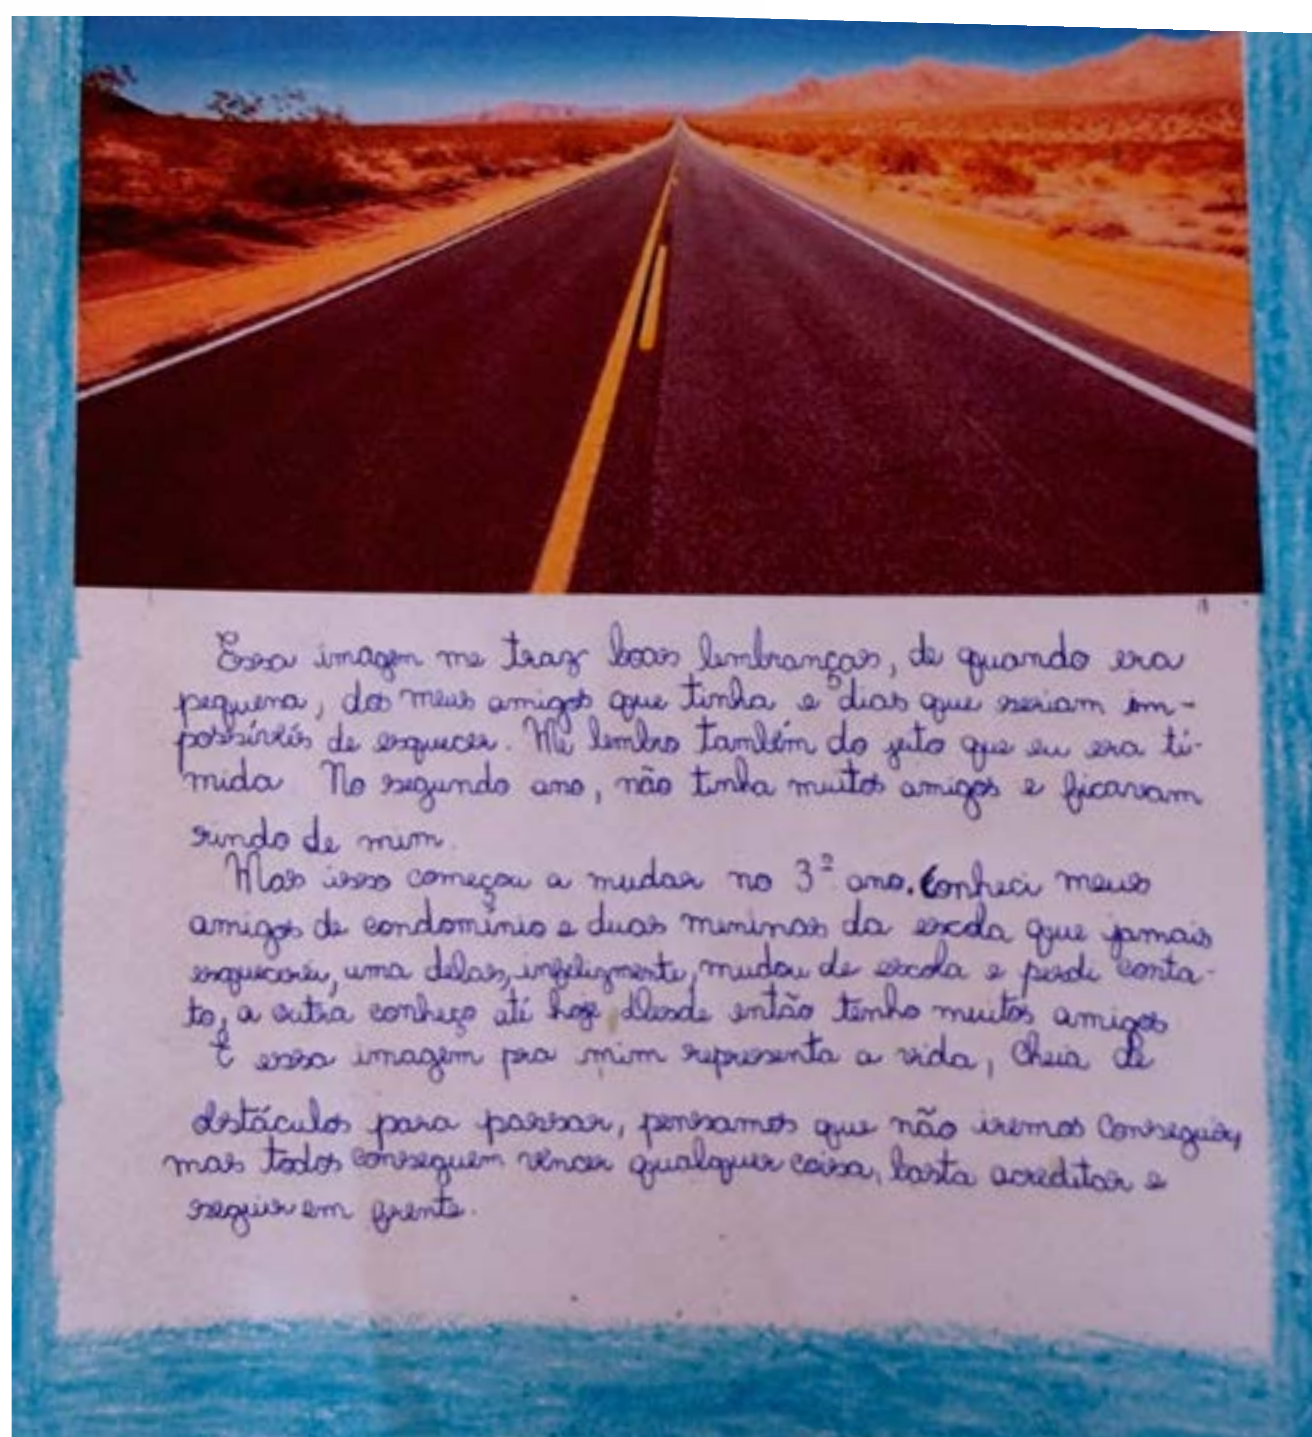 Essa imagem me traz boas lembranças, de quando era
pequena, dos meus amigos que tinha e dias que seriam im-
possíveis de esquecer. Me lembro também do jeito que eu era tí-
mida. No segundo ano, não tinha muitos amigos e ficavam
rindo de mim.
Mas isso começou a mudar no 3º ano. Conheci meus
amigos de condomínio e duas meninas da escola que jamais
esquecerei, uma delas, infelizmente, mudou de escola e perdi conta-
to, a outra conheço até hoje. Desde então tenho muitos amigos
E essa imagem pra mim representa a vida, cheia de
obstáculos para passar, pensamos que não iremos conseguir,
mas todos conseguem vencer qualquer coisa, basta acreditar e
seguir em frente.